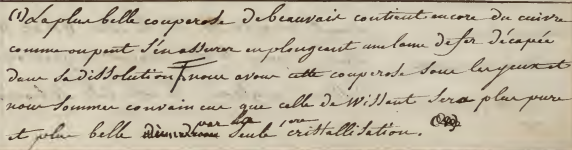 (1) La plus belle couperose de beauvais contient encore du cuivre
comme on peut s'en assurer en plongeant une lame de fer décapée
dans sa dissolution nous avons cette couperose sous les yeux et
nous sommes convaincus que celle de Wissant sera plus pure
et plus belle par la seule 1ere cristallisation.